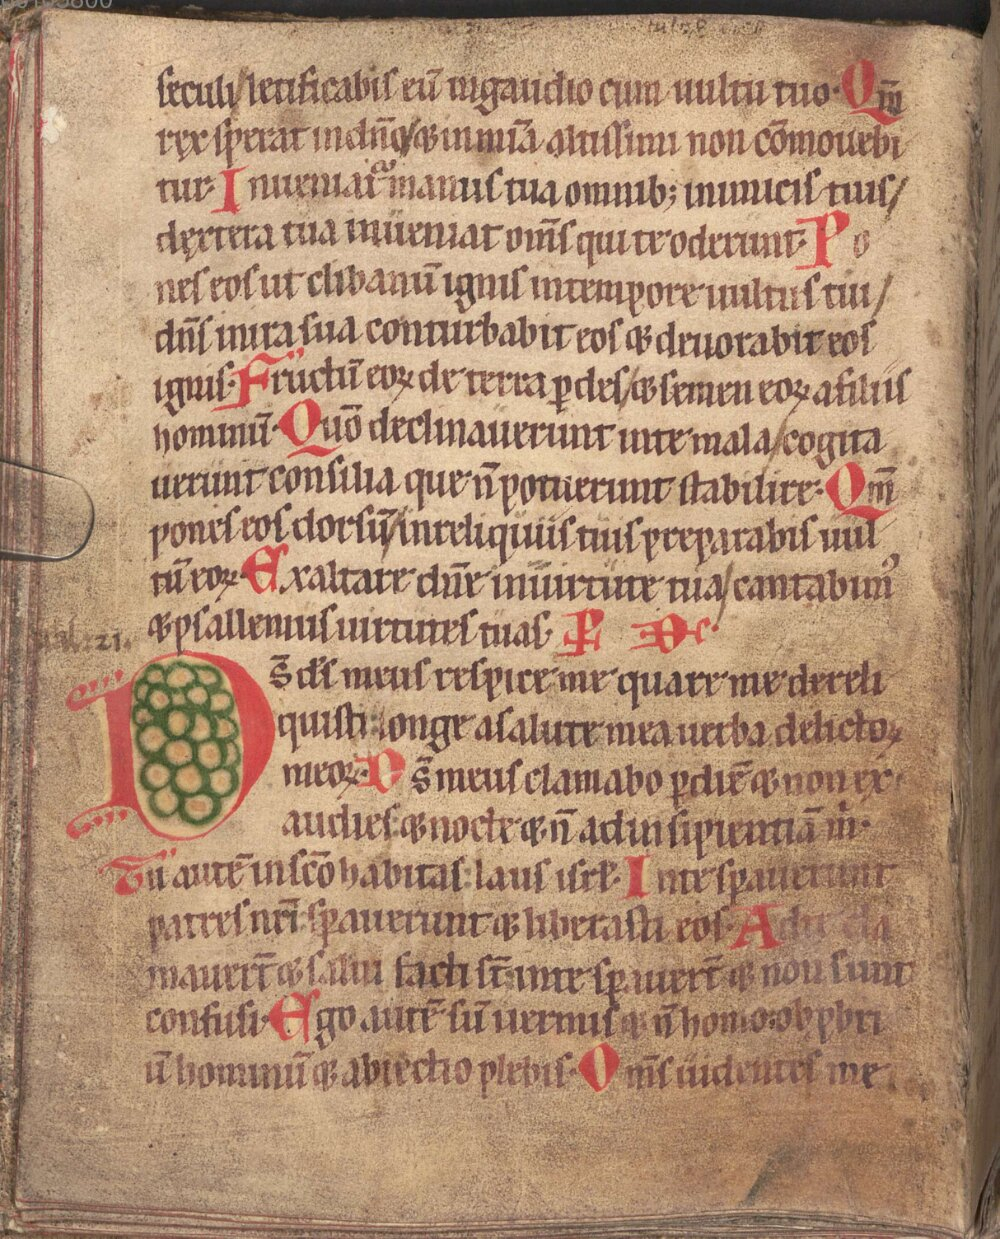 seculi/letificabis eū ingaudio cum uultu tuo· Qm̄
rex sperat in dn̄o/⁊ in mīa altissimi non cōmouebi
tur· Inueniat᷑ manus tua omnib; inimicis tuis/
dextera tua inueniat om̄s qui te oderunt· Po
nes eos ut clibanū ignis intempore uultus tui/
dn̄s inira sua conturbabit eos ⁊ deuorabit eos
ignis· Fructū eoꝝ de terra ꝑdes/⁊ semen eoꝝ afiliis
hominū· Quō declinauerunt inte mala/cogita
uerunt consilia que n̄ potuerunt stabilire· Qm̄
pones eos dorsū/inreliquiis tuis preparabis uul
tū eoꝝ· Exaltare dn̄e inuirtute tua/cantabimꝰ
⁊ psallemus uirtutes tuas
:21.
Ds̄ ds̄ meus respice me quare me dereli
quisti: longe asalute mea uerba delictoꝝ
meoꝝ· Ds̄ meus clamabo ꝑ diē ⁊ non ex
audies: ⁊ nocte ⁊ n̄ adinsipientiā m̄·
Tu autē in sc̄o habitas: laus isrl̄· Inte sꝑauerunt
patres nr̄i: sꝑauerunt ⁊ liberasti eos· Adte cla
mauert̄ ⁊ salui facti st̄: inte sꝑauert̄ ⁊ non sunt
confusi· Ego autē sū uermis ⁊ n̄ homo: obꝓbri
ū hominū ⁊ abiectio plebis· Om̄s uidentes me